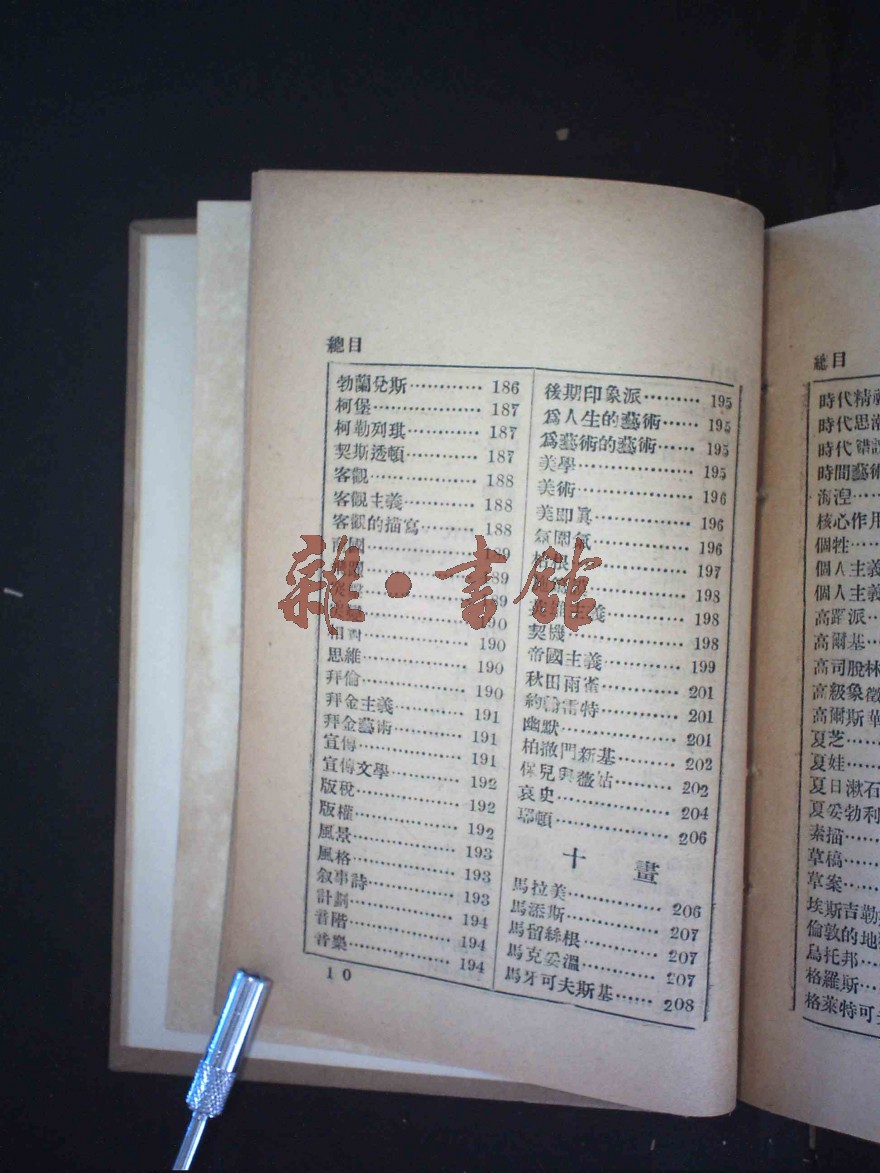 總目
勃蘭兌斯…………186
柯堡…………187
柯勒列琪…………187
契斯透頓…………187
客觀…………188
客觀主義…………188
客觀的描寫…………188
189
189
189
190
190
思維…………190
拜倫…………190
拜金主義…………191
拜金藝術…………191
宣傳…………191
宣傳文學…………192
版稅…………192
版權…………192
風景…………193
風格…………193
敘事詩…………193
計劃…………194
音階…………194
音樂…………194
10
後期印象派…………195
爲人生的藝術……195
爲藝術的藝術……195
美學…………195
美術…………196
美即眞…………196
氛圍氣…………196
197
198
英雄主義…………198
契機…………198
帝國主義…………199
秋田雨雀…………201
約翰雷特…………201
幽默…………201
柏撤門新基…………202
保兒與薇姑…………202
哀史…………204
耶頓…………206
十畫
馬拉美…………206
馬添斯…………207
馬留絲根…………207
馬克妥溫…………207
馬牙可夫斯基……208
總目
時代精神
時代思潮
時代錯誤
時間藝術
海涅…
核心作用
個性…
個人主義
個人主義
高蹈派…
高爾基…
高司股林
高級象徵
高爾斯華
夏芝…
夏娃…
夏日漱石
夏妥勃利
素描…
草稿…
草案…
埃斯吉勒
倫敦的地
烏托邦…
格羅斯…
格萊特可
雜·書館